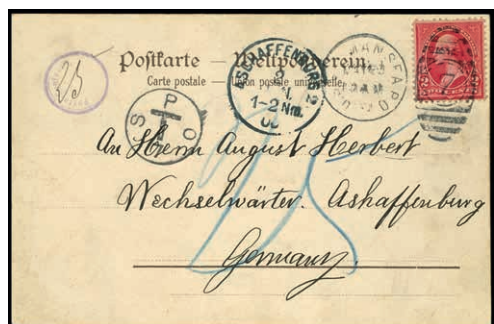 Postkarte — Weltpostverein.
Carte postale — Union postale universelle.
25
ASCHAFFENBURG 2
1-2 Nm.
00
P
O
S
T
2
25
An Herrn August Herbert
Wechselwärter. Ashaffenburg
Germany.